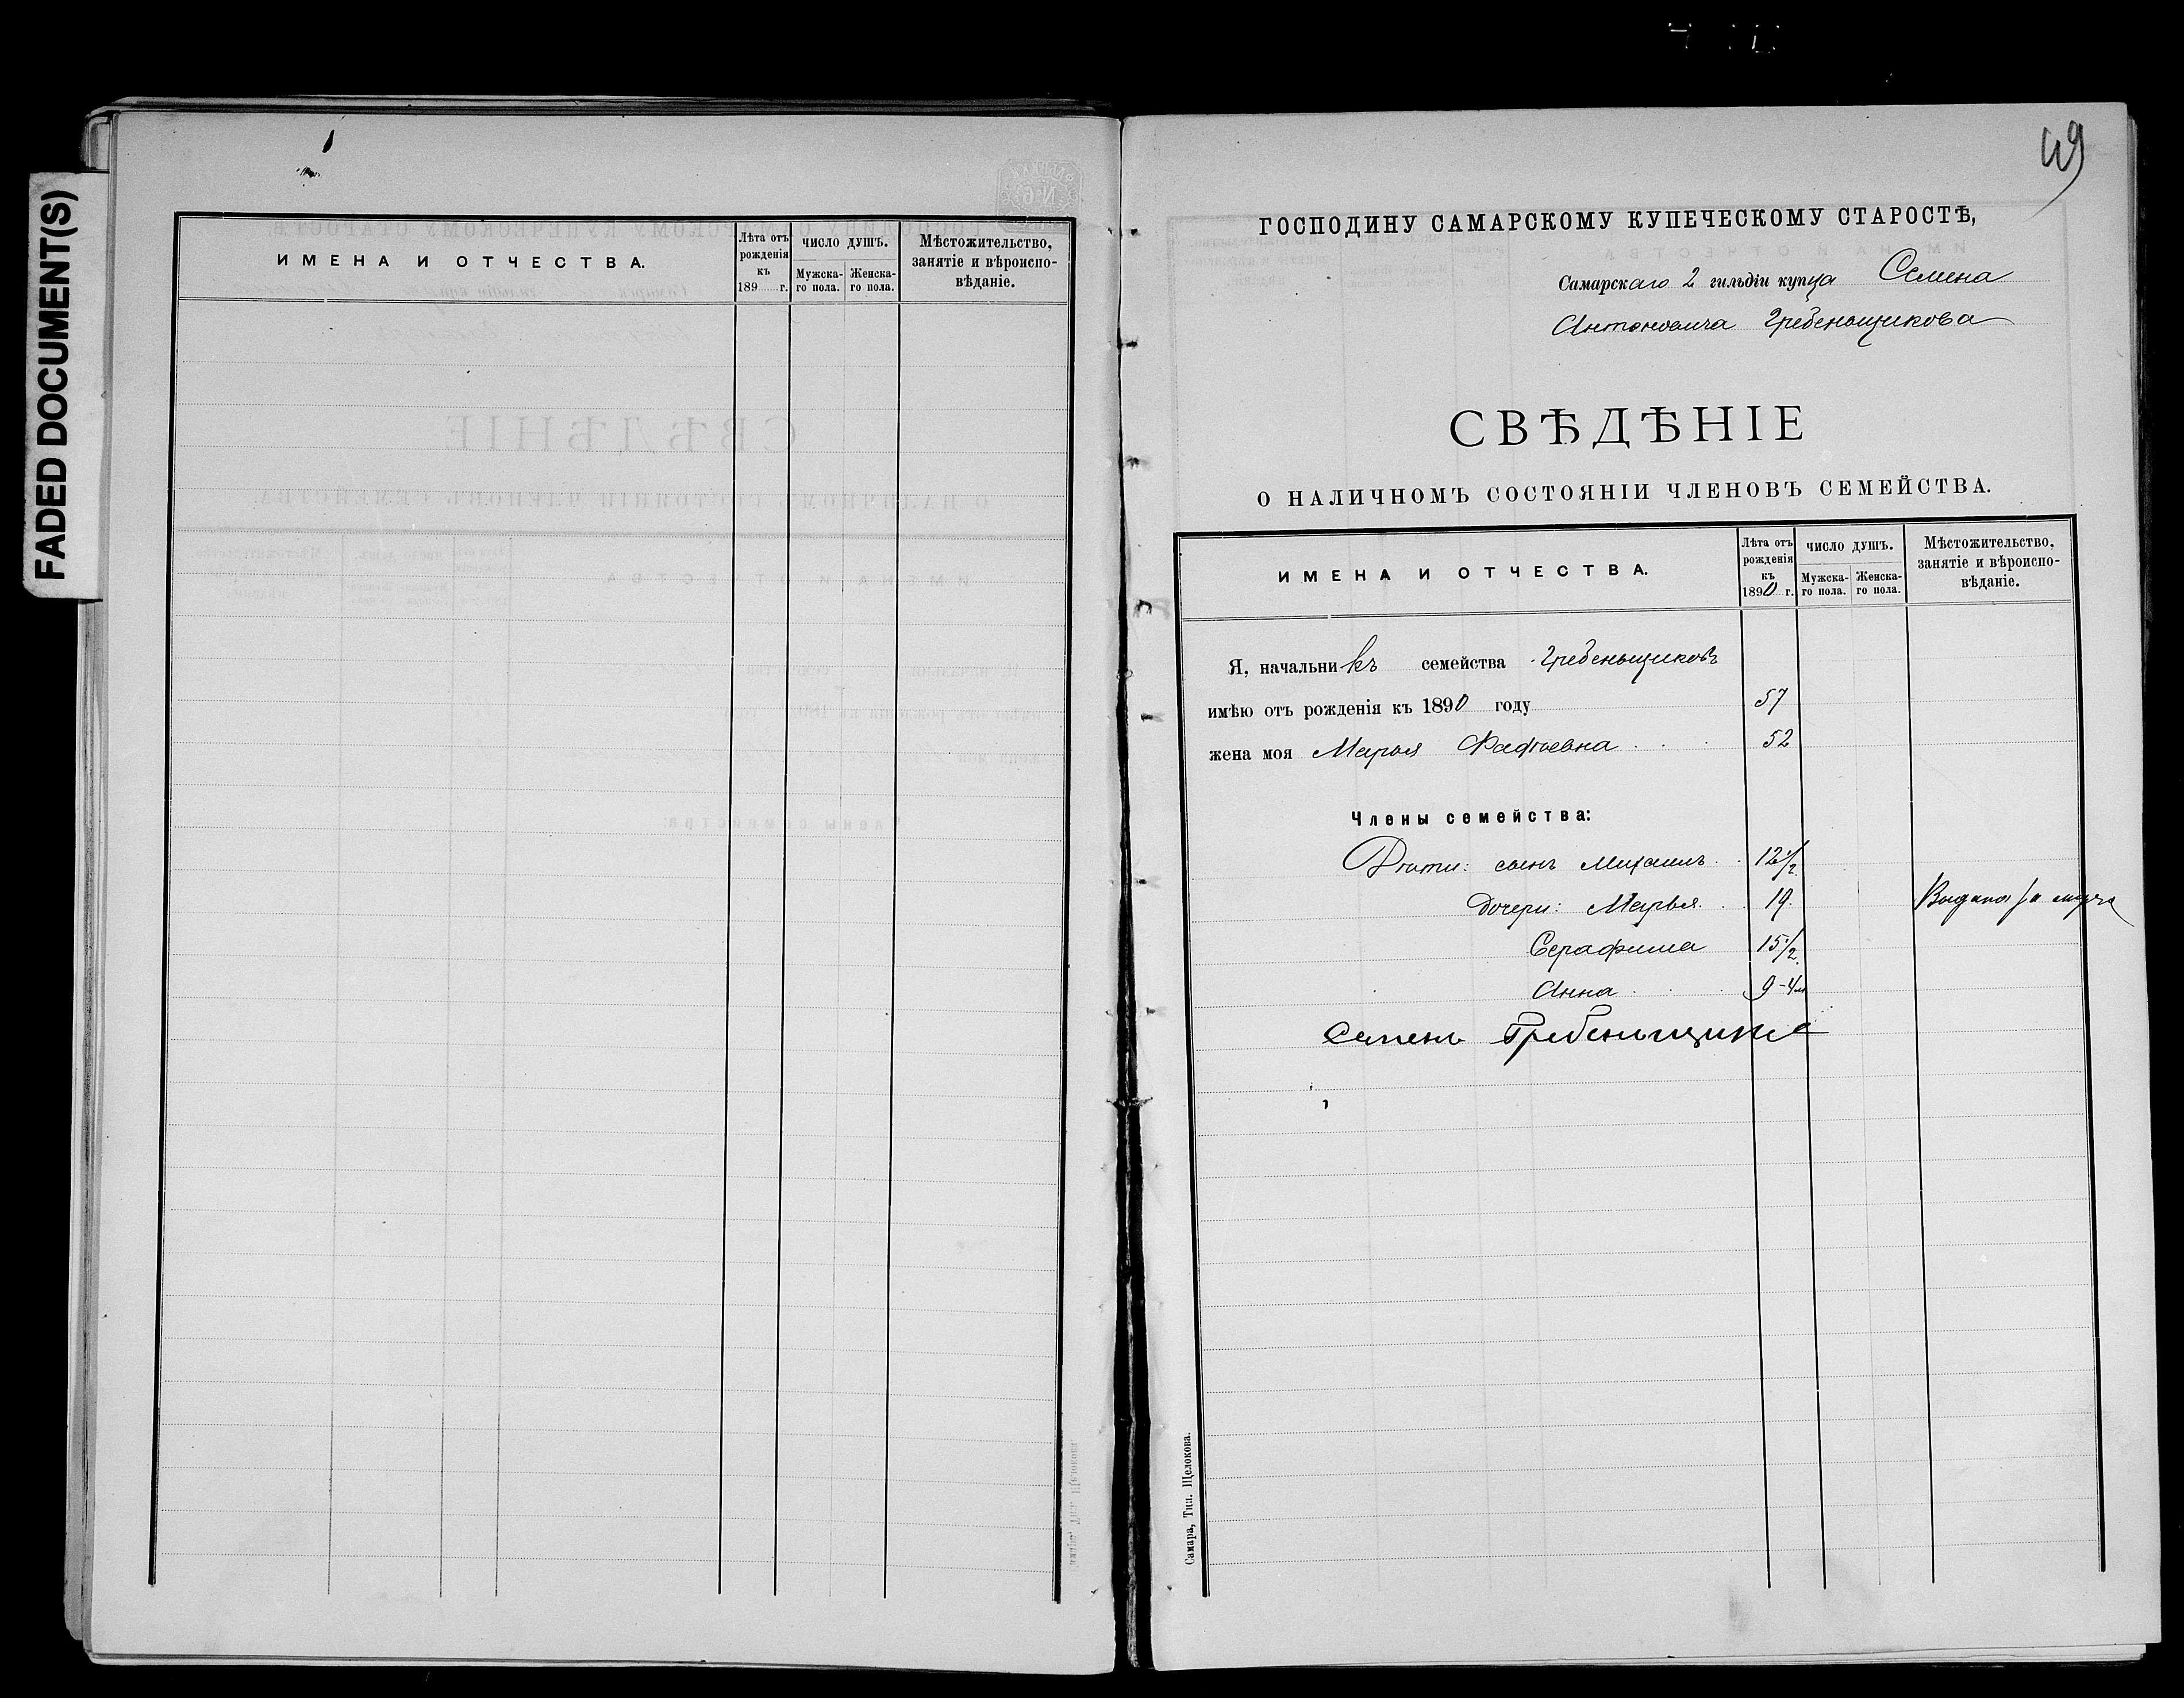 FADED DOCUMENT(S)
ИМЕНА И ОТЧЕСТВА.
Лѣта отъ рожденія къ 189 г.
ЧИСЛО ДУШЪ.
Мужска-го пола.
Женска-го пола.
Мѣстожительство, занятіе и вѣроиспо-вѣданіе.
49
ГОСПОДИНУ САМАРСКОМУ КУПЕЧЕСКОМУ СТАРОСТѢ,
Самарскаго 2 гильдіи купца Семена
Антоновича Гребеньщикова
СВѢДѢНІЕ
О НАЛИЧНОМЪ СОСТОЯНІИ ЧЛЕНОВЪ СЕМЕЙСТВА.
ИМЕНА И ОТЧЕСТВА.
Лѣта отъ рожденія къ 1890 г.
ЧИСЛО ДУШЪ.
Мужска-го пола.
Женска-го пола.
Мѣстожительство, занятіе и вѣроиспо-вѣданіе.
Я, начальникъ семейства Гребеньщиковъ
имѣю отъ рожденія къ 1890 году 57
жена моя Марья 52
Члены семейства:
Дѣти: сынъ Михаилъ 12 1/2
дочери: Марья 19. Выдана за мужъ
Серафима 15 1/2
Анна 9-4м
Семенъ Гребеньщиков
Самара, Тип. Щелокова.